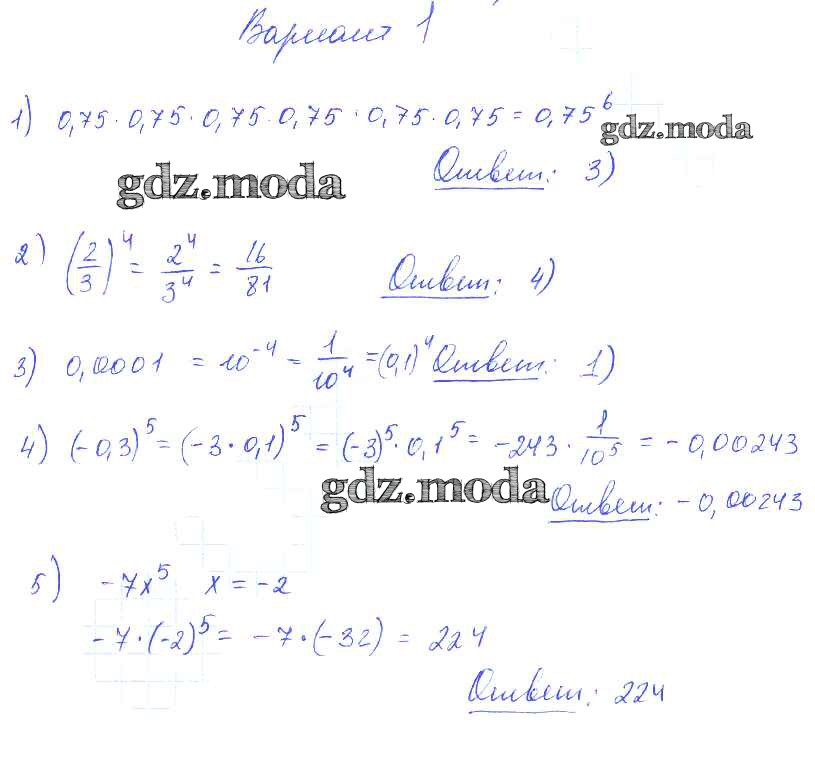 Вариант 1
1) 0,75 · 0,75 · 0,75 · 0,75 · 0,75 · 0,75 = 0,75⁶
gdz.moda
Ответ: 3)
gdz.moda
2) (2/3)⁴ = 2⁴/3⁴ = 16/81 Ответ: 4)
3) 0,0001 = 10⁻⁴ = 1/10⁴ = (0,1)⁴ Ответ: 1)
4) (-0,3)⁵ = (-3 · 0,1)⁵ = (-3)⁵ · 0,1⁵ = -243 · 1/10⁵ = -0,00243
gdz.moda
Ответ: -0,00243
5) -7x⁵ x = -2
-7 · (-2)⁵ = -7 · (-32) = 224
Ответ: 224